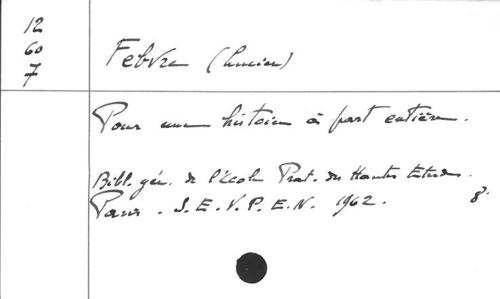 12
60
7
Febvre (Lucien)
Pour une histoire à part entière.
Bibl. gén. de l'école Prat. des Hautes Etudes.
Paris. S.E.V.P.E.N. 1962. 8°